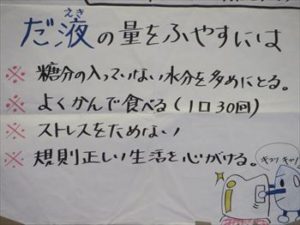 だ液の量をふやすには
えき
※ 糖分の入っていない水分を多めにとる。
※ よくかんで食べる(1口30回)
※ ストレスをためない!
※ 規則正しい生活を心がける。
キュッ キュッ